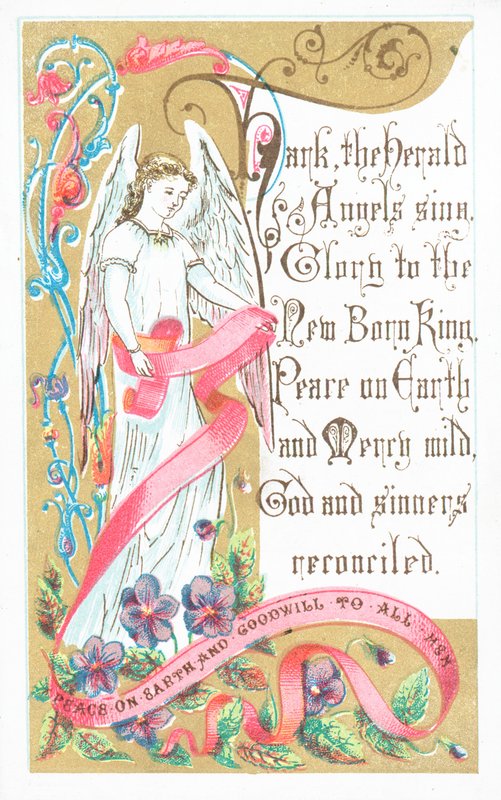 Hark, the Herald
Angels sing,
Glory to the
New Born King,
Peace on Earth
and Mercy mild,
God and sinners
reconciled.
PEACE · ON · EARTH · AND · GOODWILL · TO · ALL · MEN